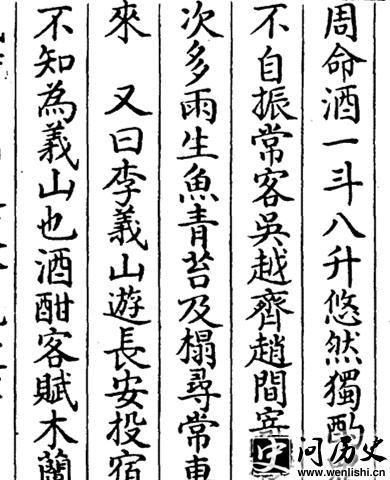 周命酒一斗八升悠然獨酌
不自振常客吳越齊趙間寄
次多雨生魚青苔及榻尋常車
來 又曰李義山遊長安投宿
不知為義山也酒酣客賦木蘭
史问历史
www.wenlishi.cn